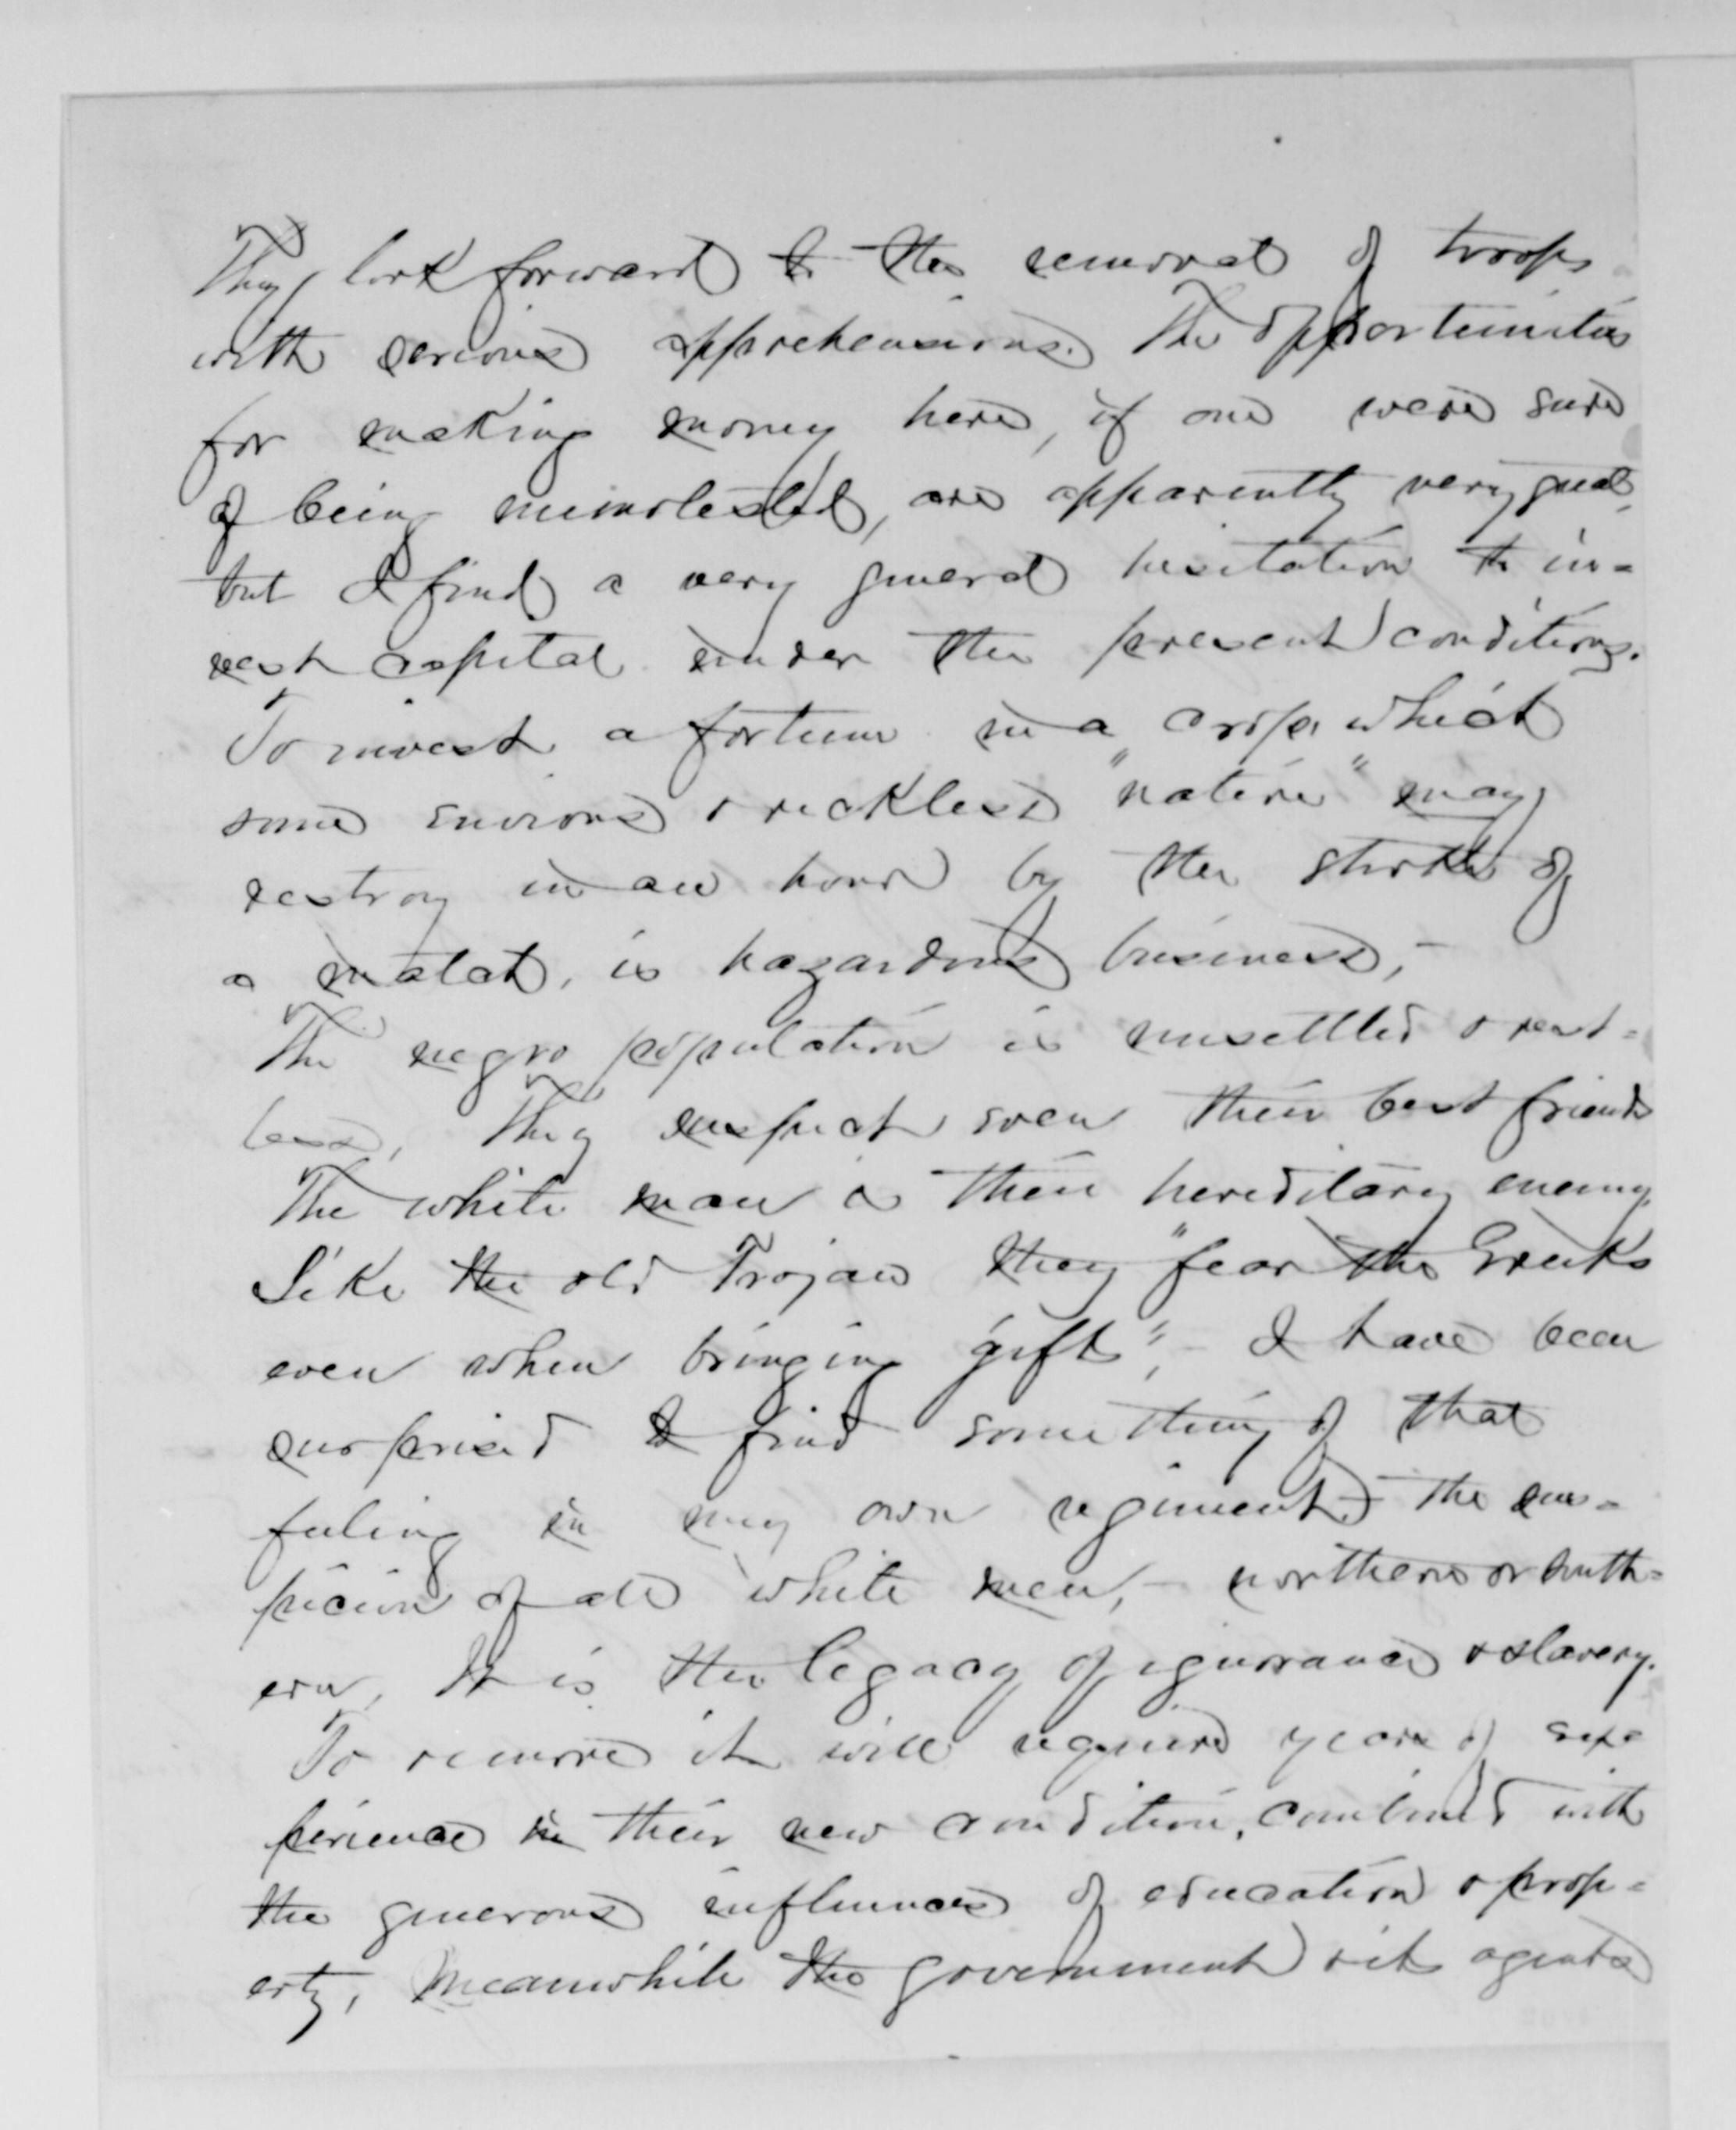 They look forward to the removal of troops
with serious apprehensions. The opportunities
for making money here, if one were sure
of being unmolested, are apparently very great,
but I find a very general hesitation to in=
vest capital under the present conditions.
To invest a fortune in a crop, which
some envious & reckless "native" may
destroy in an hour by the stroke of
a match, is hazardous business, -
The negro population is unsettled & rest=
less, They suspect even their best friends
The white man is their hereditary enemy.
Like the old Trojan they "fear the Greeks
even when bringing gifts", - I have been
surprised to find something of that
feeling in my own regiment, - The sus=
picion of all white men, - northern or south=
ern, It is the legacy of ignorance & slavery.
To remove it will require years of ex=
perience in their new condition, combined with
the generous influences of education & prop=
erty, Meanwhile the government & its agents